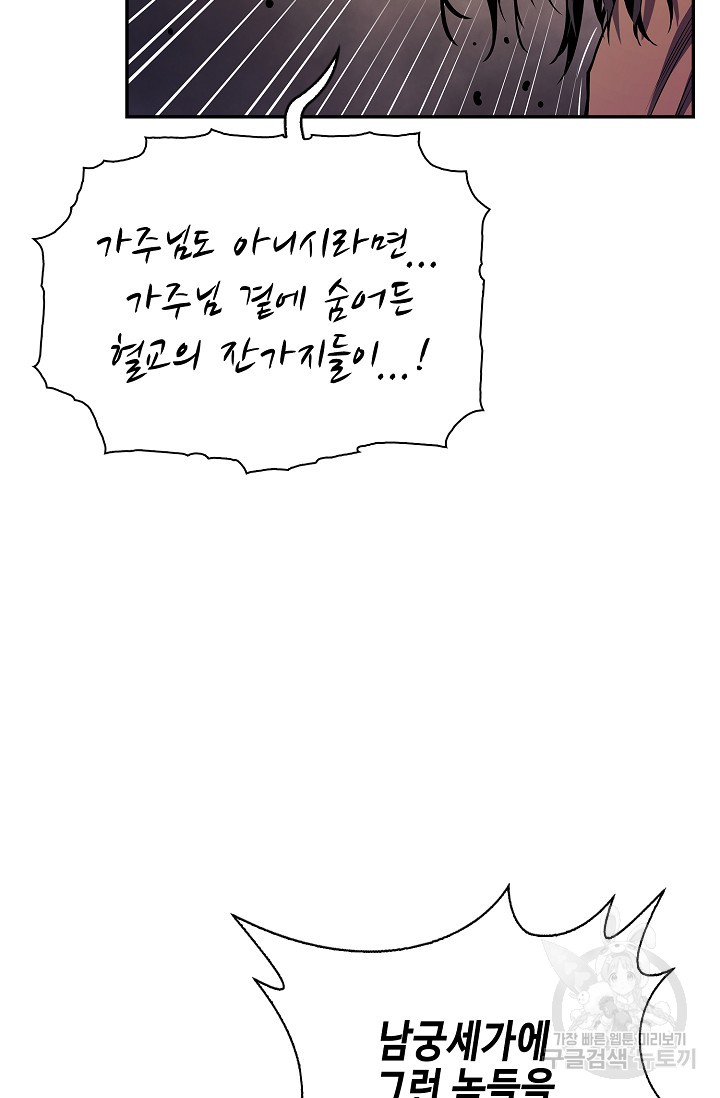 가주님도 아니시라면...
가주님 곁에 숨어든
혈교의 잔가지들이...!
남궁세가에
그런 놈들을
가장 빠른 웹툰 미리보기
구글검색 뉴토끼